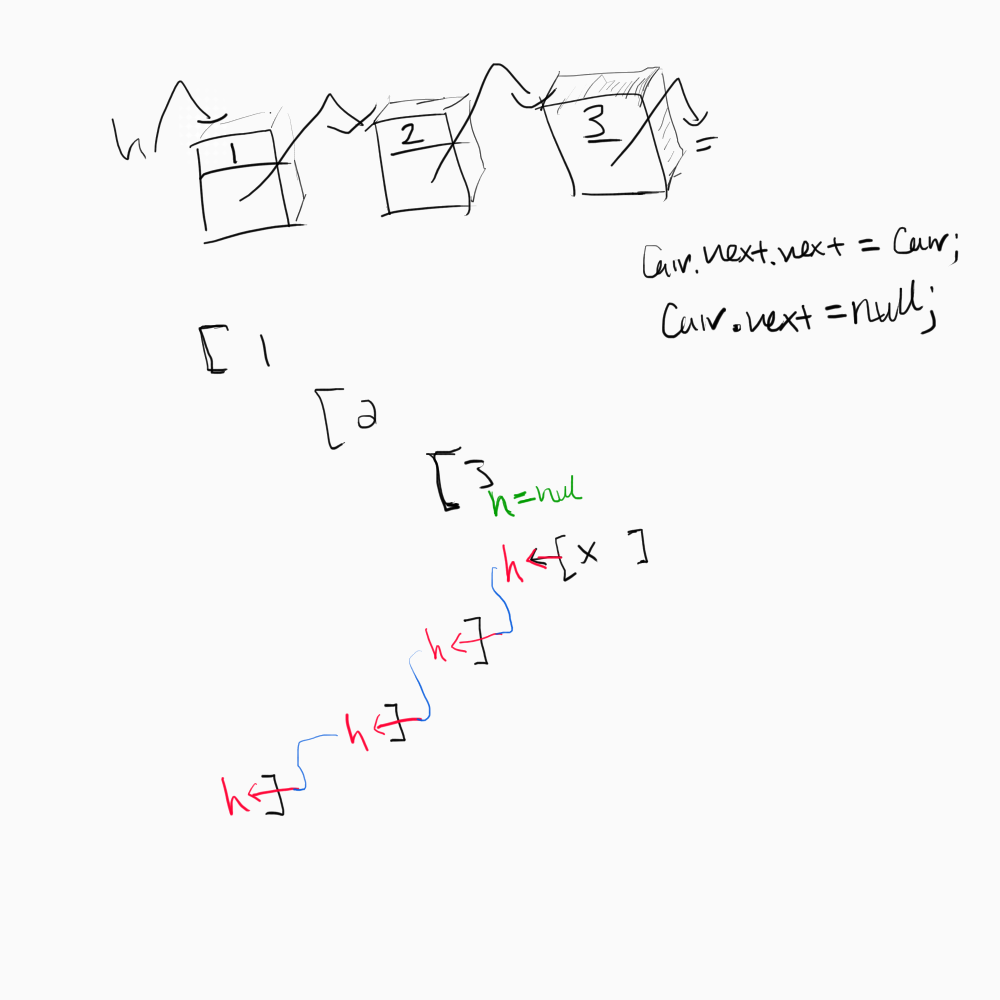 h
1
2
3
=
Curr.next.next = Curr;
Curr.next = null;
[ 1
[ 2
[ 3
h = null
h ← [ x ]
h ← ]
h ← ]
h ← ]